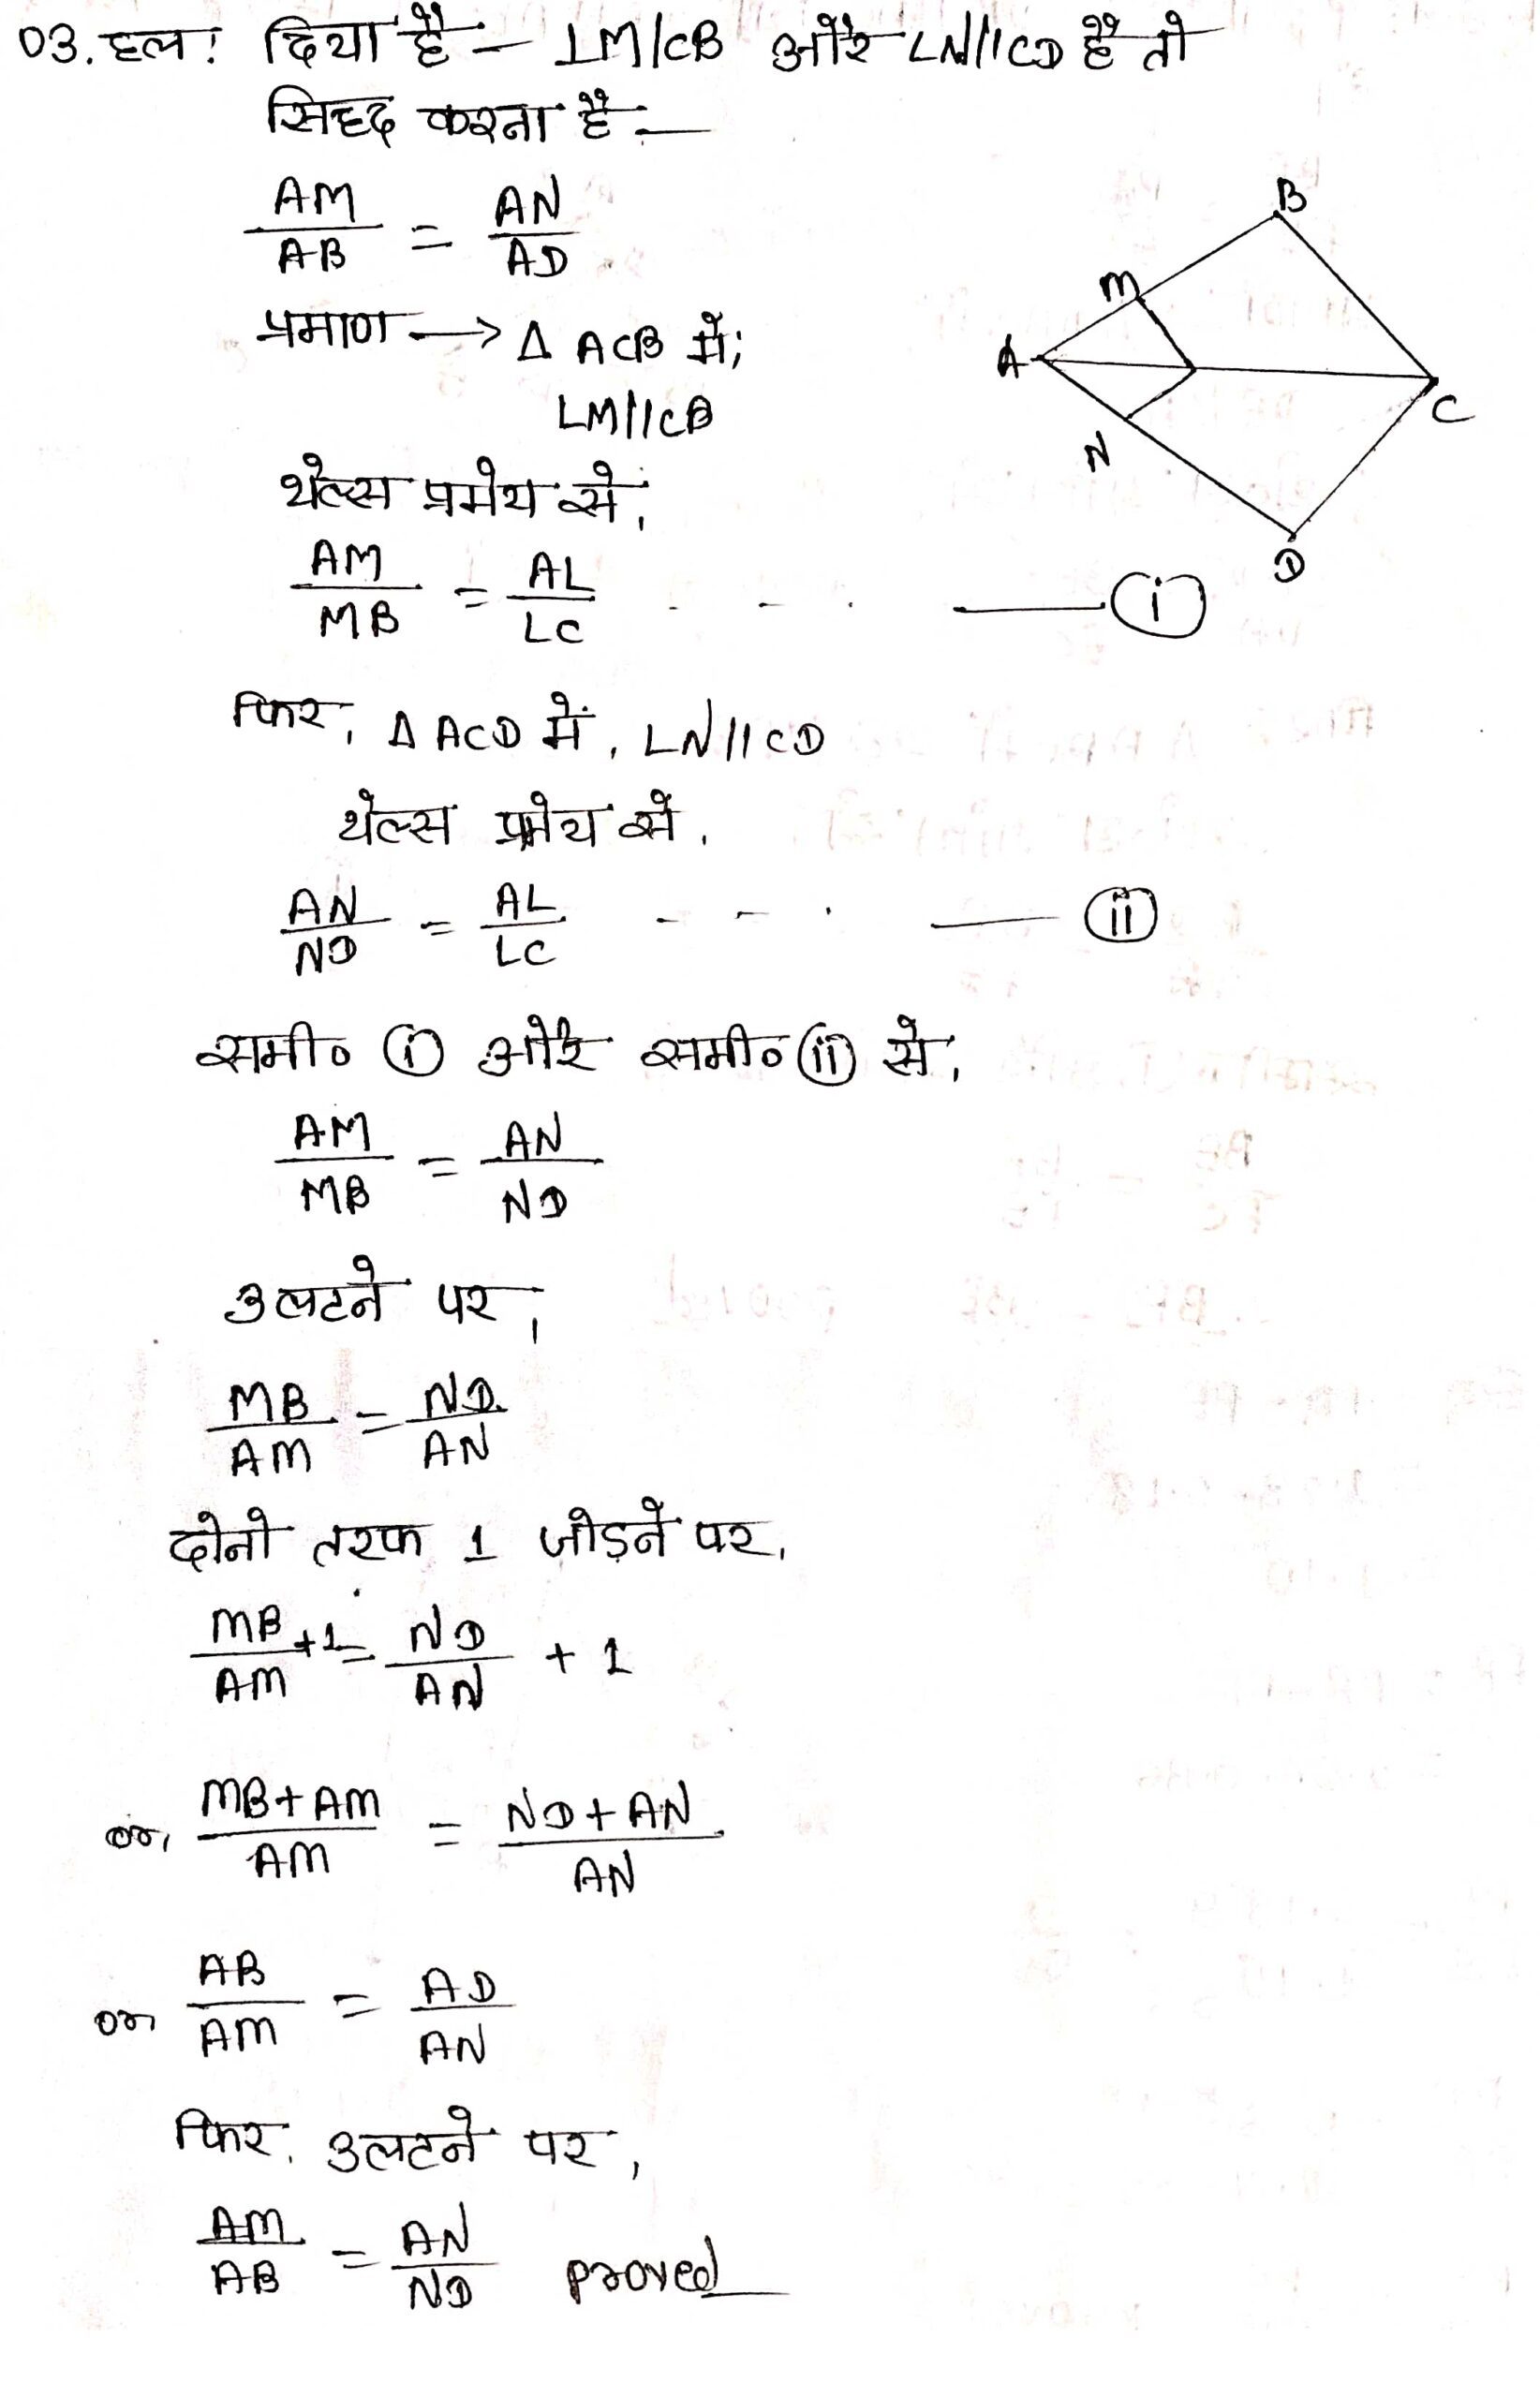 03. हल: दिया है - LM|CB और LN||CD है तो
सिद्ध करना है :-
AM/AB = AN/AD
प्रमाण → Δ ACB में;
LM||CB
थेल्स प्रमेय से,
AM/MB = AL/LC - - . —(i)
फिर, Δ ACD में, LN||CD
थेल्स प्रमेय से,
AN/ND = AL/LC - - . —(ii)
समी० (i) और समी० (ii) से,
AM/MB = AN/ND
उलटने पर,
MB/AM = ND/AN
दोनो तरफ 1 जोड़ने पर,
MB/AM +1 = ND/AN + 1
or, MB+AM/AM = ND+AN/AN
or AB/AM = AD/AN
फिर, उलटने पर,
AM/AB = AN/ND proved
B
M
A
C
N
D